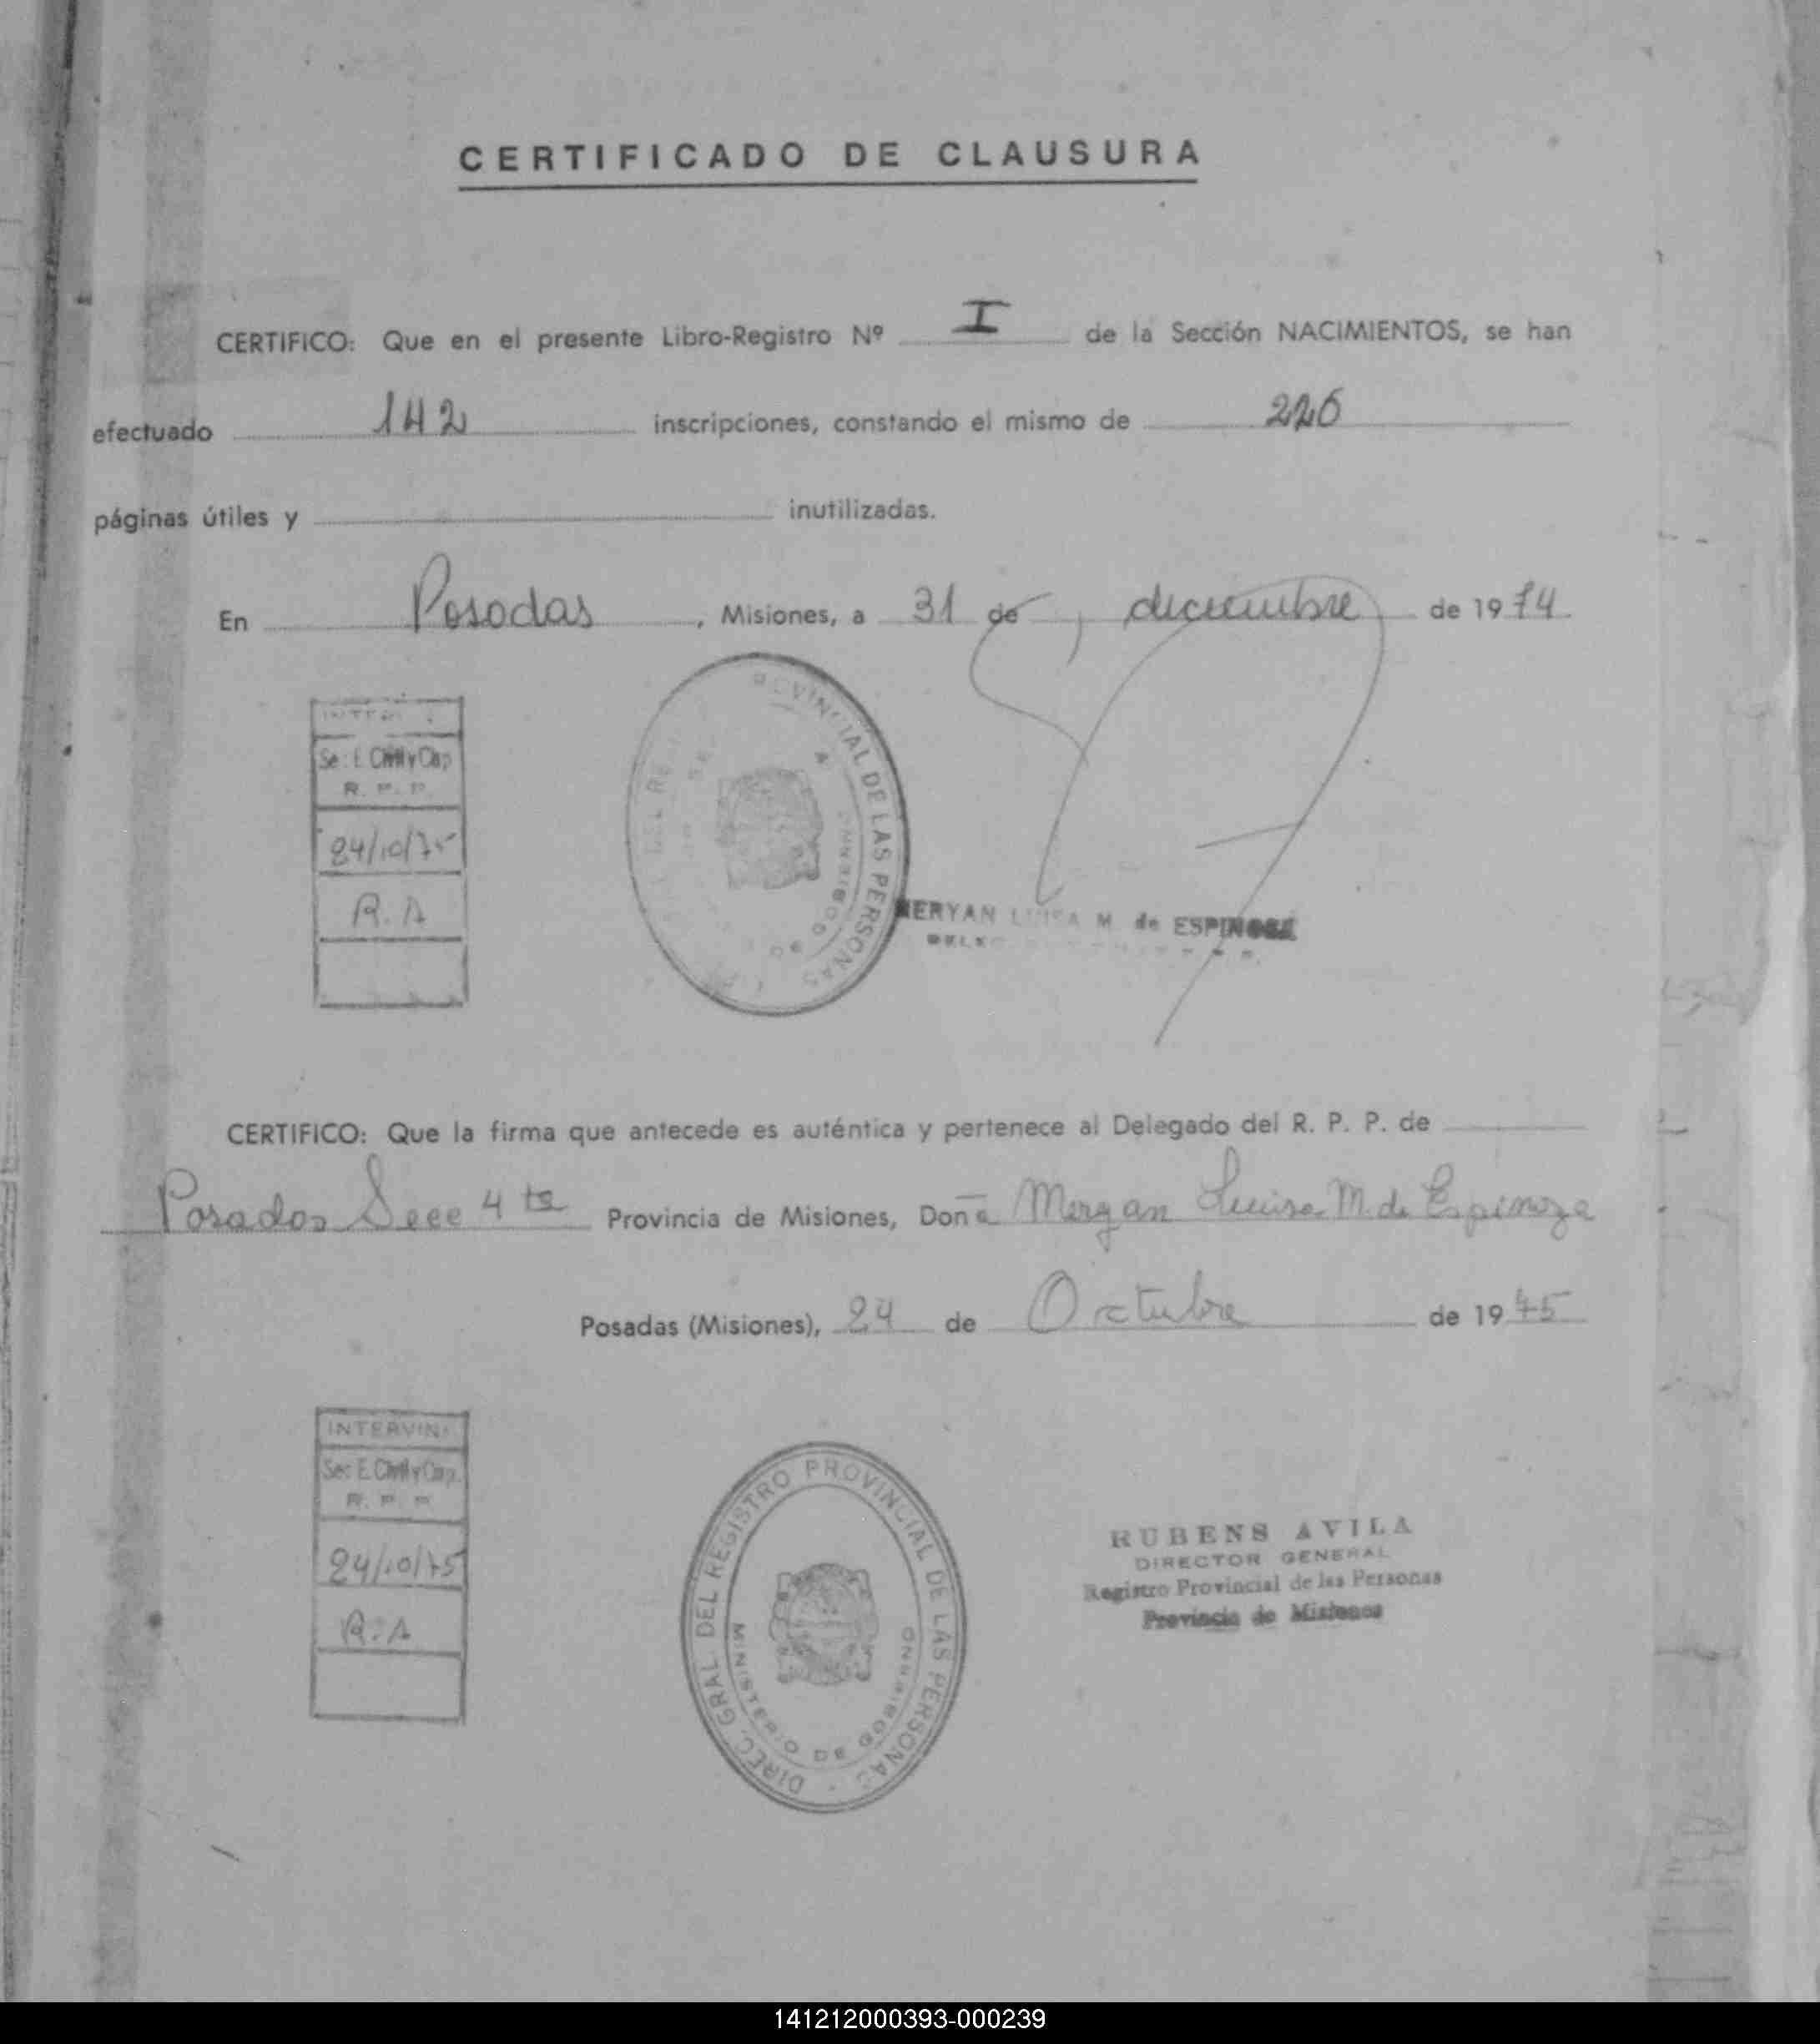 CERTIFICADO DE CLAUSURA
CERTIFICO: Que en el presente Libro-Registro Nº I de la Sección NACIMIENTOS, se han
efectuado 142 inscripciones, constando el mismo de 226
páginas útiles y inutilizadas.
En Posadas, Misiones, a 31 de diciembre de 1974
Se: E. Civil y Cap
R. P. P.
24/10/75
R. A
PROVINCIAL DE LAS PERSONAS
MERYAN LUISA M. de ESPINOSA
CERTIFICO: Que la firma que antecede es auténtica y pertenece al Delegado del R. P. P. de
Posadas Secc 4ta Provincia de Misiones, Doña Meryan Luisa M. de Espinoza
Posadas (Misiones), 24 de Octubre de 1975
INTERVINO
Sec E. Civil y Cap.
R. P. P.
24/10/75
R. A
DIREC. GRAL. DEL REGISTRO PROVINCIAL DE LAS PERSONAS
MINISTERIO DE GOBIERNO
RUBENS AVILA
DIRECTOR GENERAL
Registro Provincial de las Personas
Provincia de Misiones
141212000393-000239